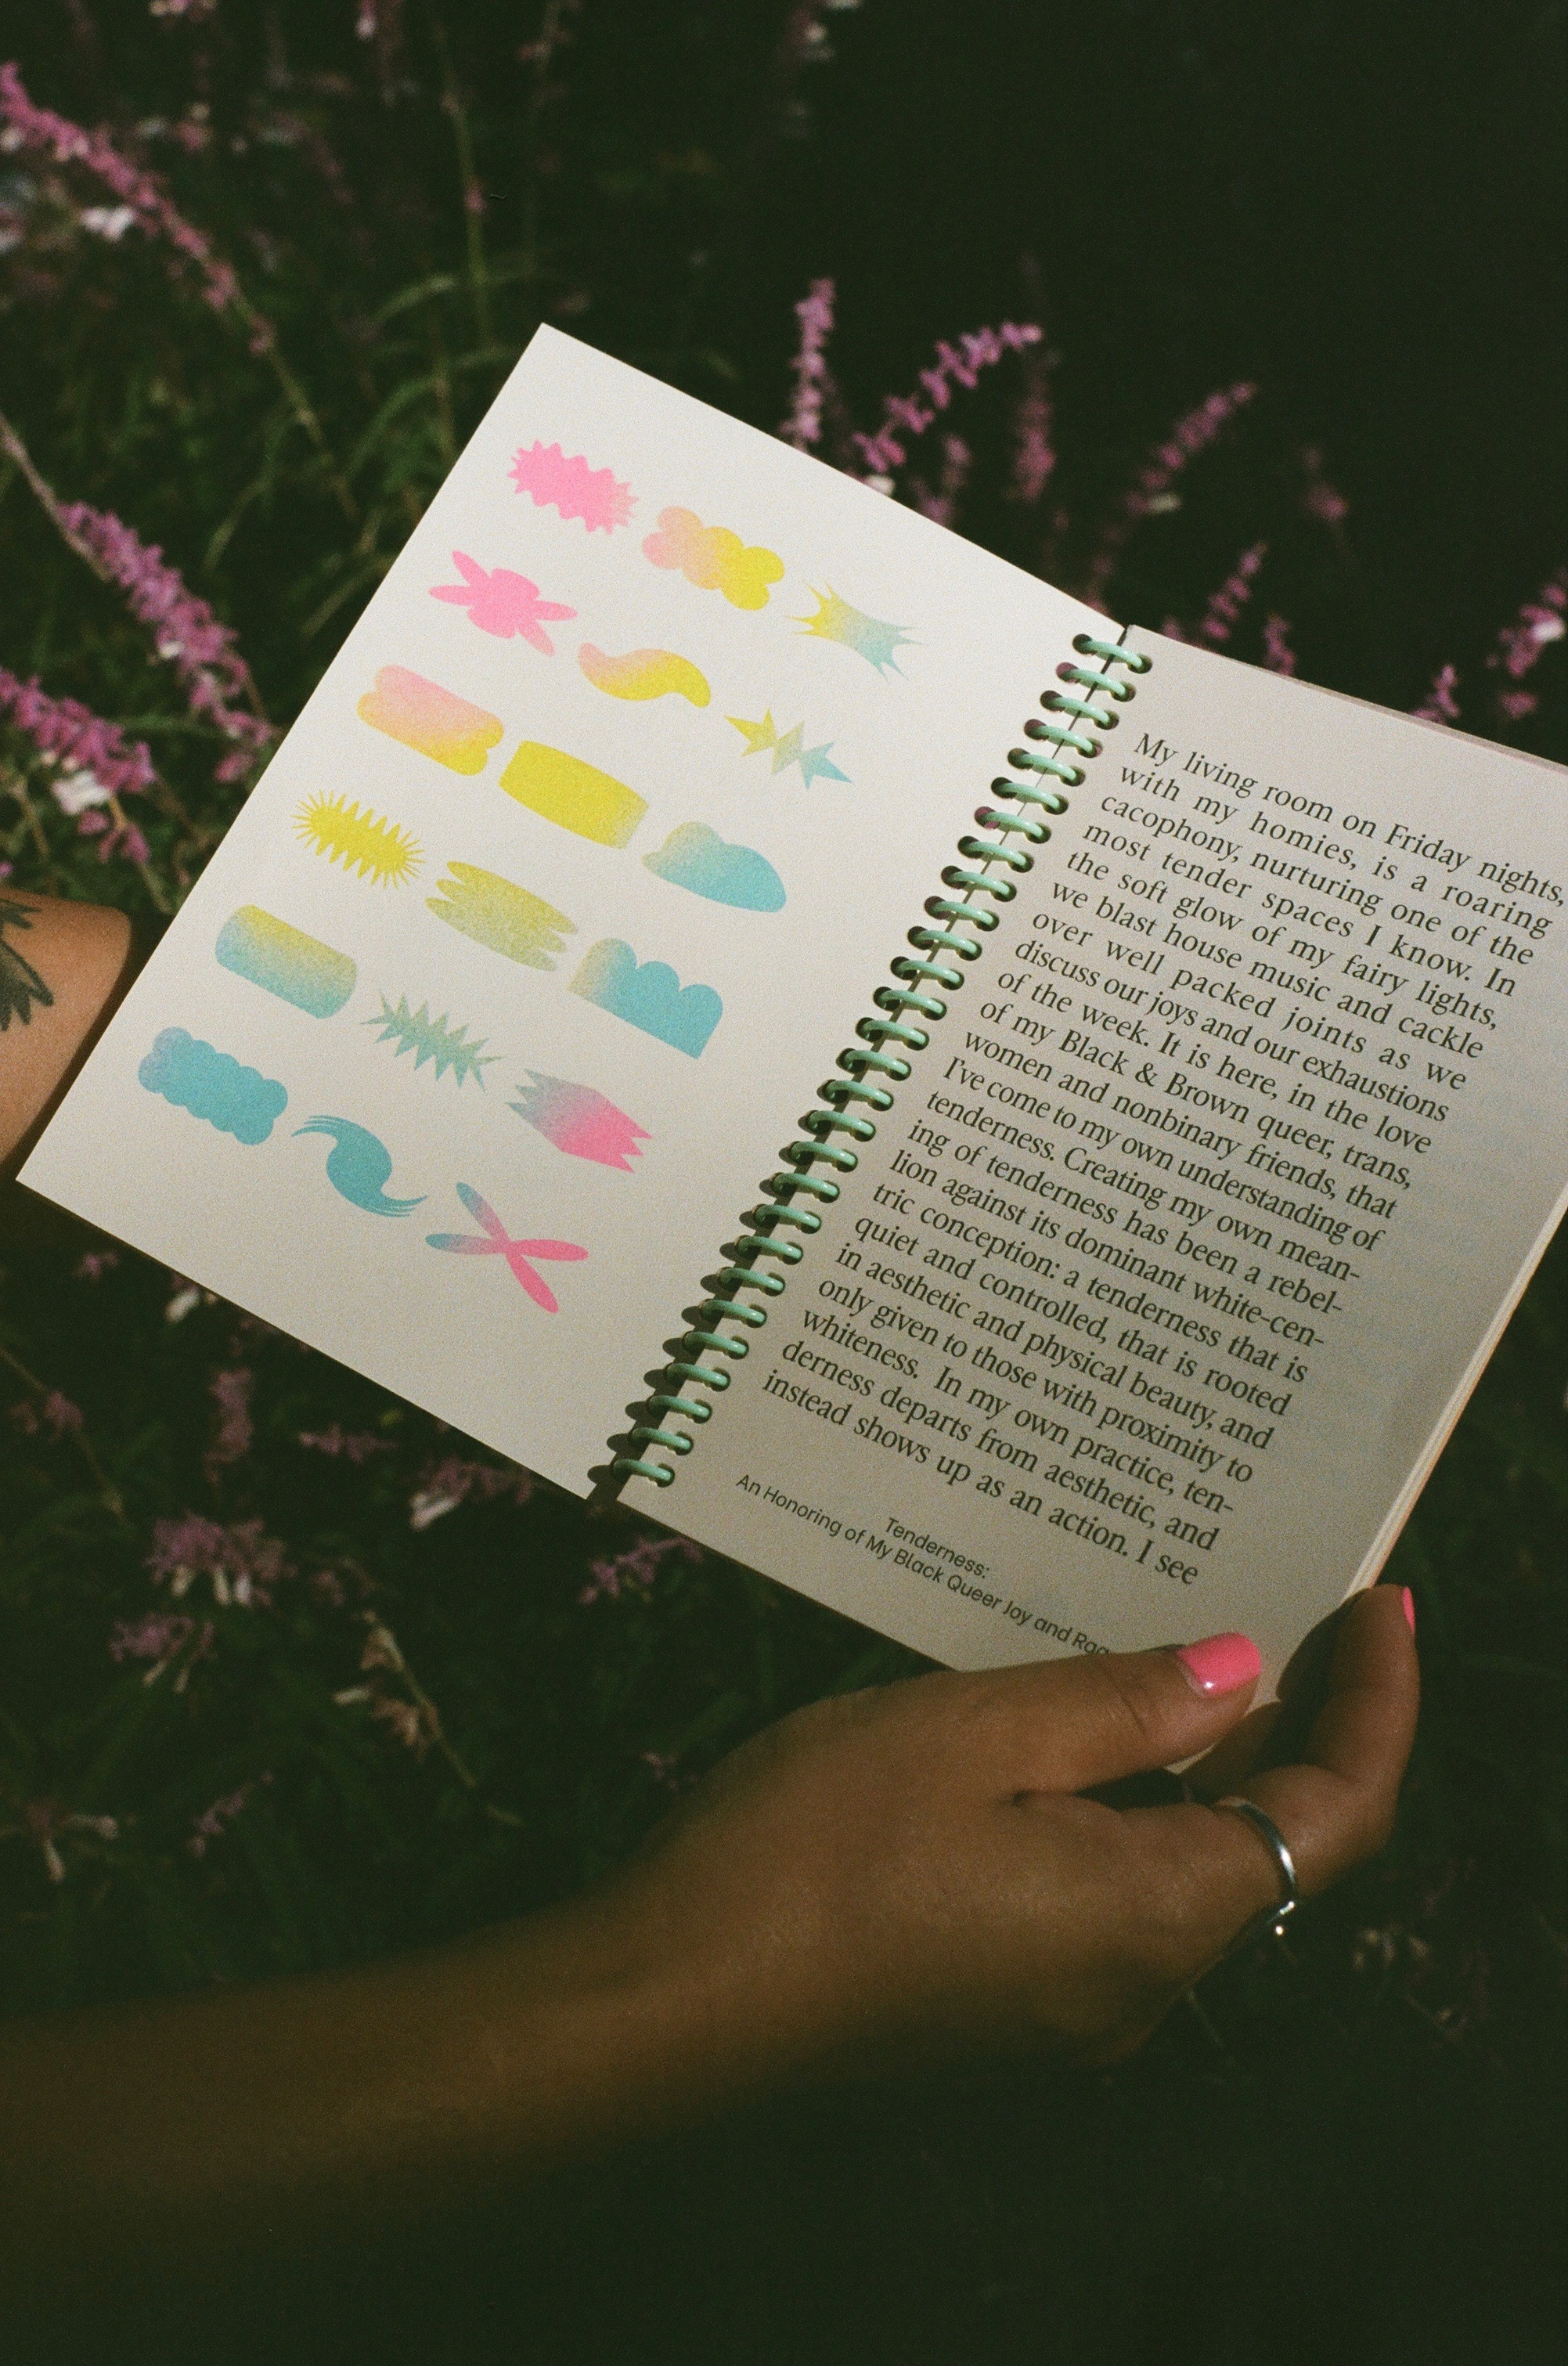 My living room on Friday nights,
with my homies, is a roaring
cacophony, nurturing one of the
most tender spaces I know. In
the soft glow of my fairy lights,
we blast house music and cackle
over well packed joints as we
discuss our joys and our exhaustions
of the week. It is here, in the love
of my Black & Brown queer, trans,
women and nonbinary friends, that
I've come to my own understanding of
tenderness. Creating my own mean-
ing of tenderness has been a rebel-
lion against its dominant white-cen-
tric conception: a tenderness that is
quiet and controlled, that is rooted
in aesthetic and physical beauty, and
only given to those with proximity to
whiteness. In my own practice, ten-
derness departs from aesthetic, and
instead shows up as an action. I see
Tenderness:
An Honoring of My Black Queer Joy and